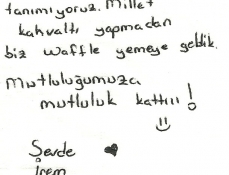 tanımıyoruz. Millet
kahvaltı yapmadan
biz waffle yemeye geldik.
Mutluluğumuza
mutluluk kattııı!
Sevde
İrem